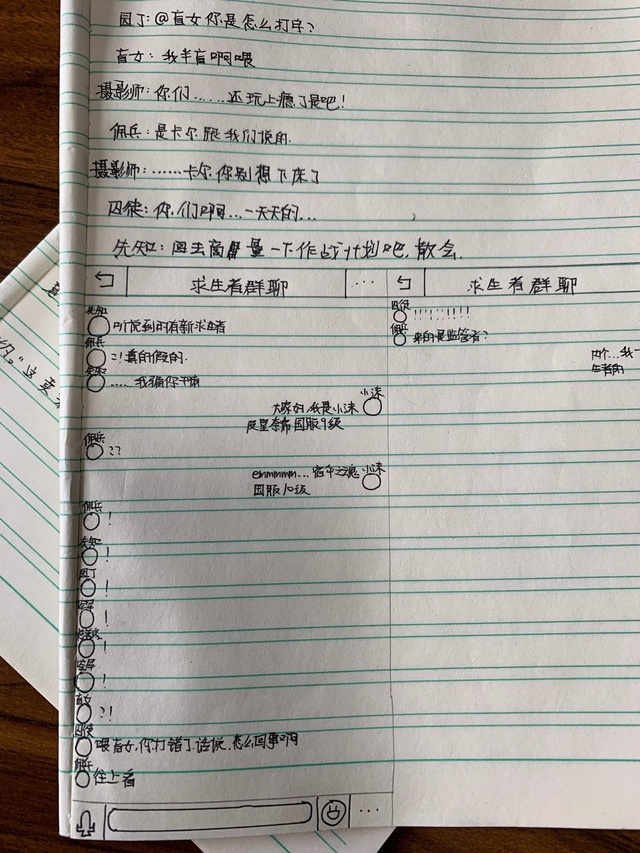 园丁:@盲女你是怎么打字?
盲女:我半盲啊喂
摄影师:你们......还玩上瘾了是吧!
佣兵:是卡尔跟我们说的.
摄影师:......卡尔你别想下床了
囚徒:你们啊...一天天的...
先知:回去商量一下作战计划吧,散会.
求生者群聊 ...
先知
听说到时有新求生者
佣兵
?!真的假的.
先知
......我骗你干嘛
小沫
大家好,我是小沫
屁皇杂希国服9级
佣兵
??
小沫
emmmmm...宿伞之魂
国服10级
佣兵
!
先知
!
园丁
!
!
!
!
盲女
?!
囚徒
喂盲女,你打错了话说,怎么回事啊
佣兵
往上看
...
求生者群聊
囚徒
!!!!!!!!
佣兵
来的是监管者?
内个...我一
生者的
"这卖